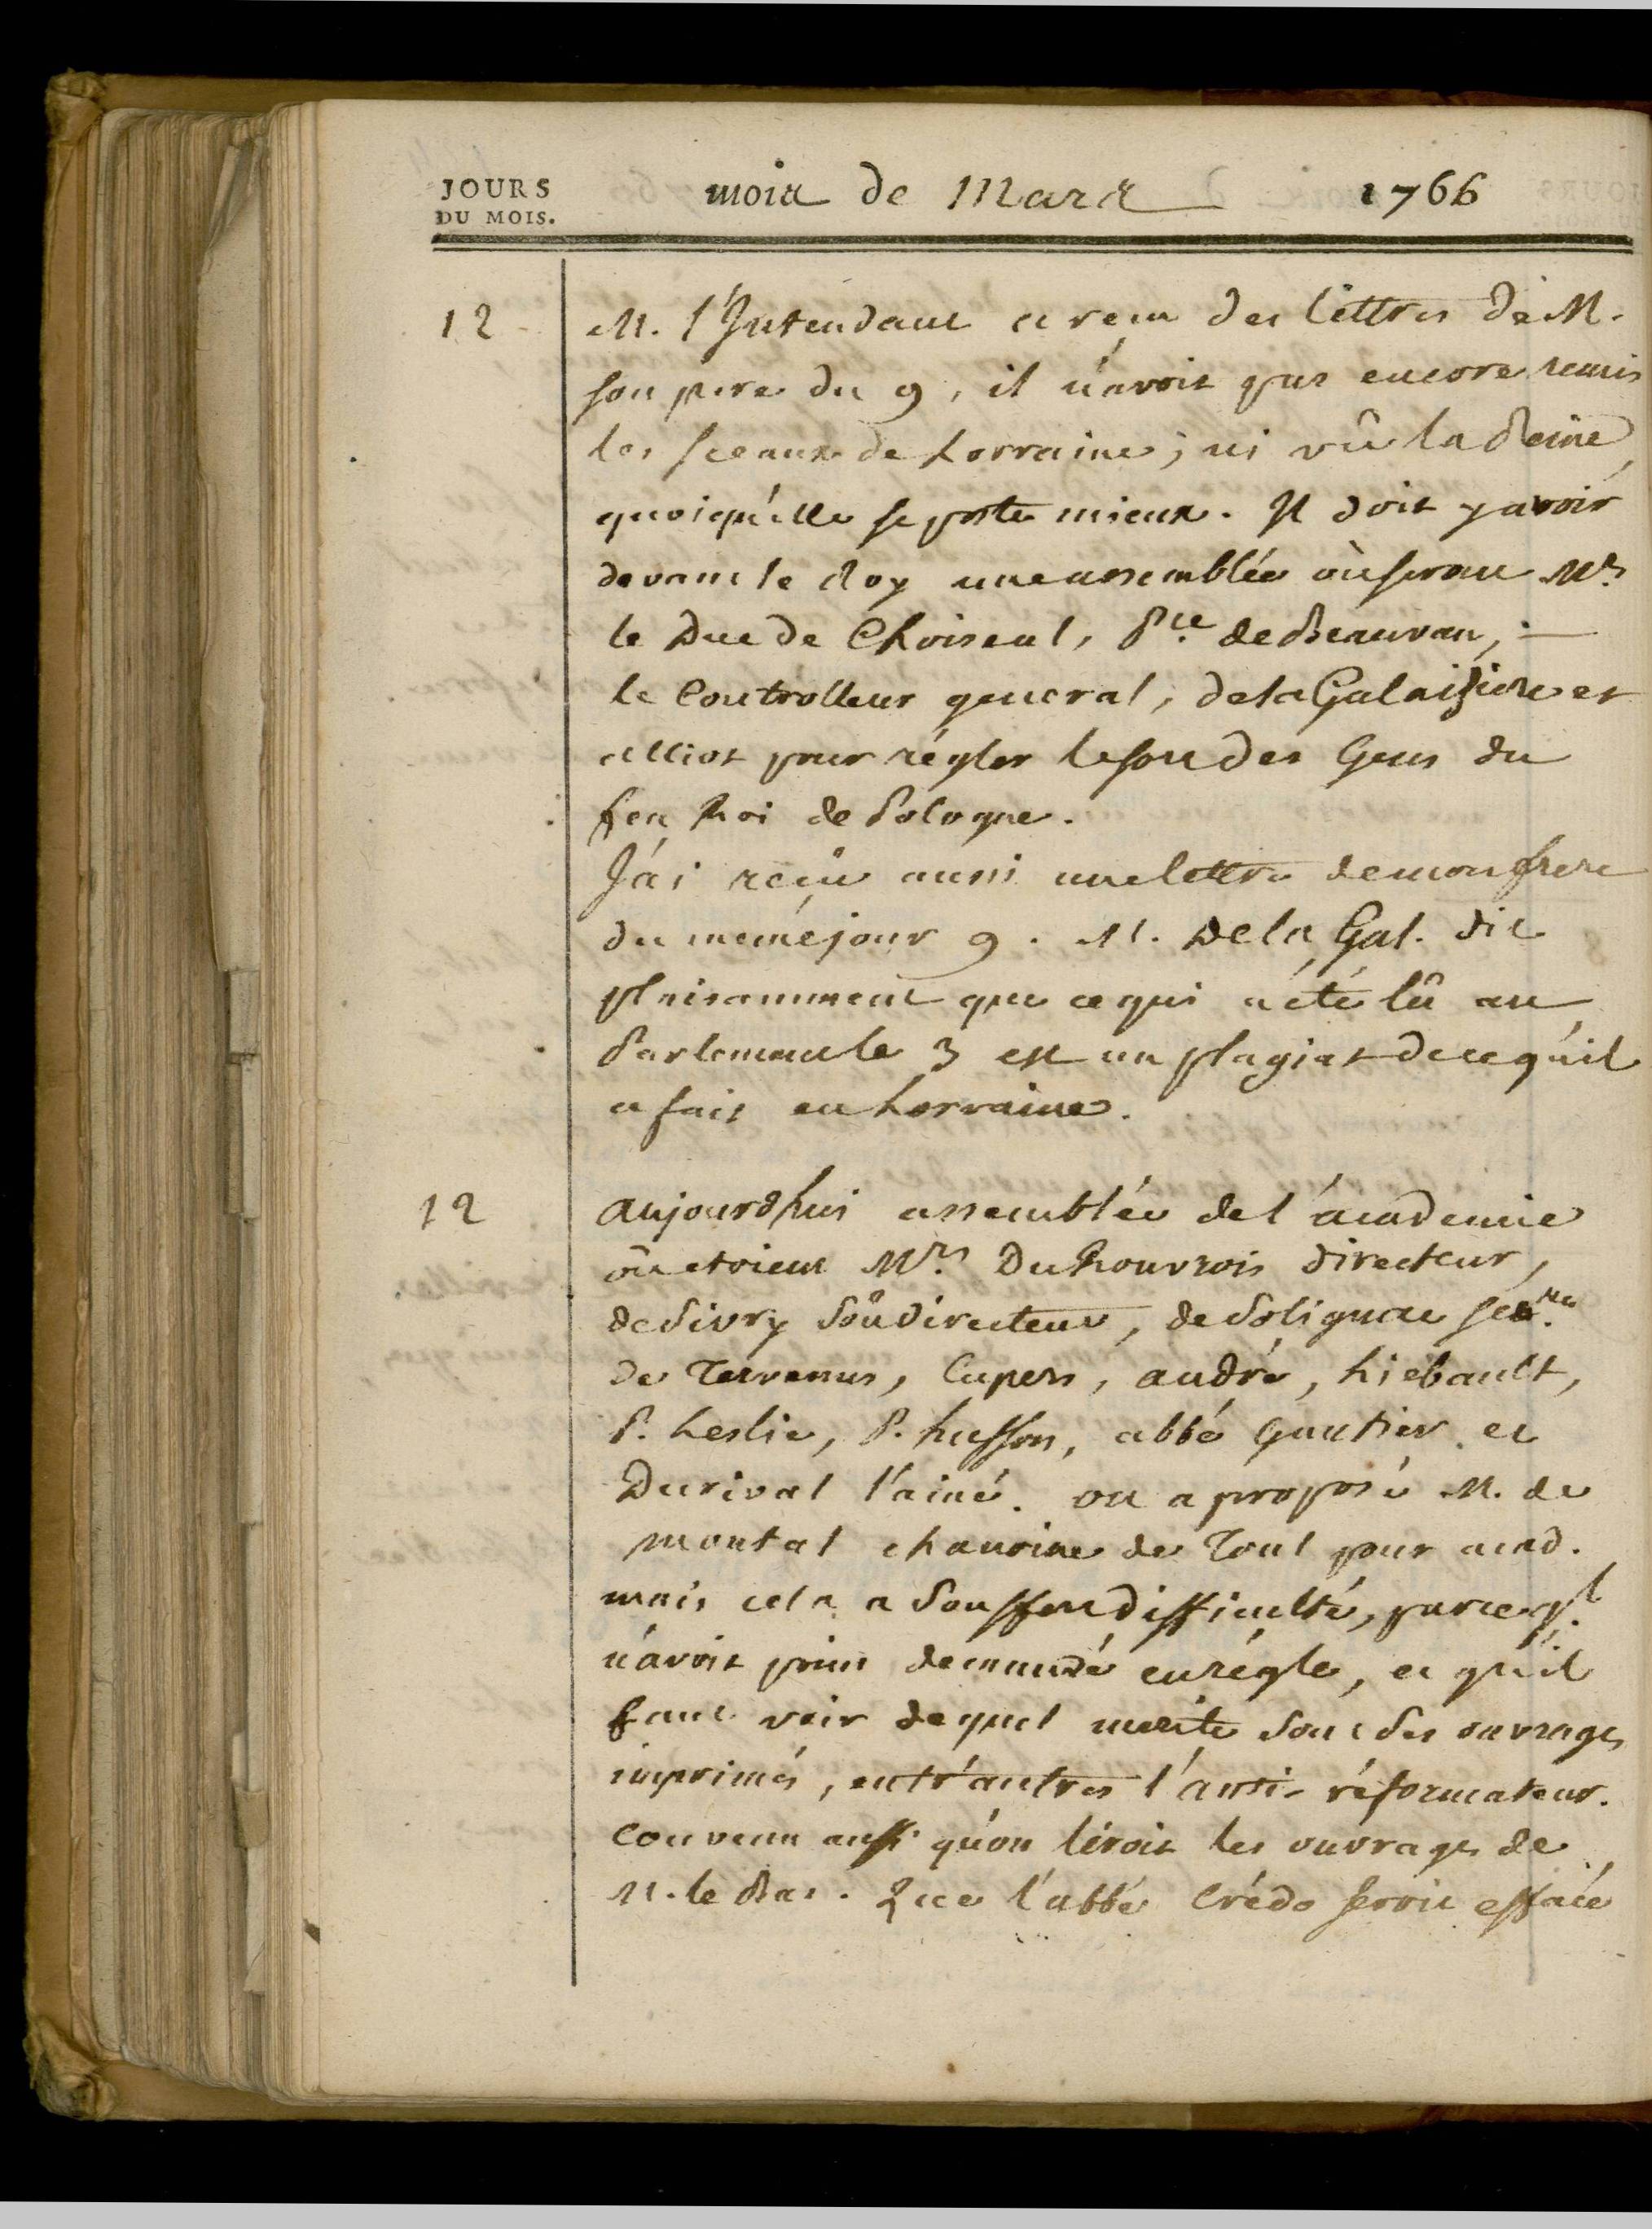 JOURS
DU MOIS.
mois de Mars 1766
12 M. l'Intendant a reçu des lettres de M.
son pere du 9, il n'avoit pas encore remis
les sceaux de Lorraine, ni vû la Reine,
quoiqu'elle se porte mieux. Il doit y avoir
devant le Roy une assemblée où seront Mrs
le Duc de Choiseul, Pce. de Beauvau,
le Controlleur general, de la Galaiziere et
alliot pour régler le sort des Gens du
feu Roi de Pologne.
J'ai reçu aussi une lettre de mon frere
du même jour 9. M. De la Gal. dit
plaisamment que ce qui a été lû au
Parlement le 3 est un plagiat de ce qu'il
a fait en Lorraine.
12 aujourd'hui assemblée de l'académie
où etoient Mrs. DuRouvrois directeur,
de Sivry Soûdirecteur, de Solignac
de Tervenus, Cupers, andré, Liébault,
P. Leslie, P. husson, abbé Gautier et
Durival l'ainé. on a proposé M. de
montal chanoine de Toul pour acad.
mais cela a Souffert difficulté, parce ql.
n'avoit point demandé en régle, et qu'il
faut voir de quel merite Sont Ses ouvrages
imprimés, entr'autres l'anti-réformateur.
Convenu aussi qu'on liroit les ouvrages de
M. le Bas. Que l'abbé Crédo seroit effacé